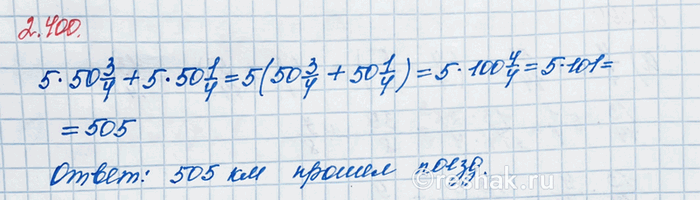 2.400.
5·50 3/4 + 5·50 1/4 = 5(50 3/4 + 50 1/4) = 5·100 4/4 = 5·101 =
= 505
Ответ: 505 км прошел поезд.
reshak.ru